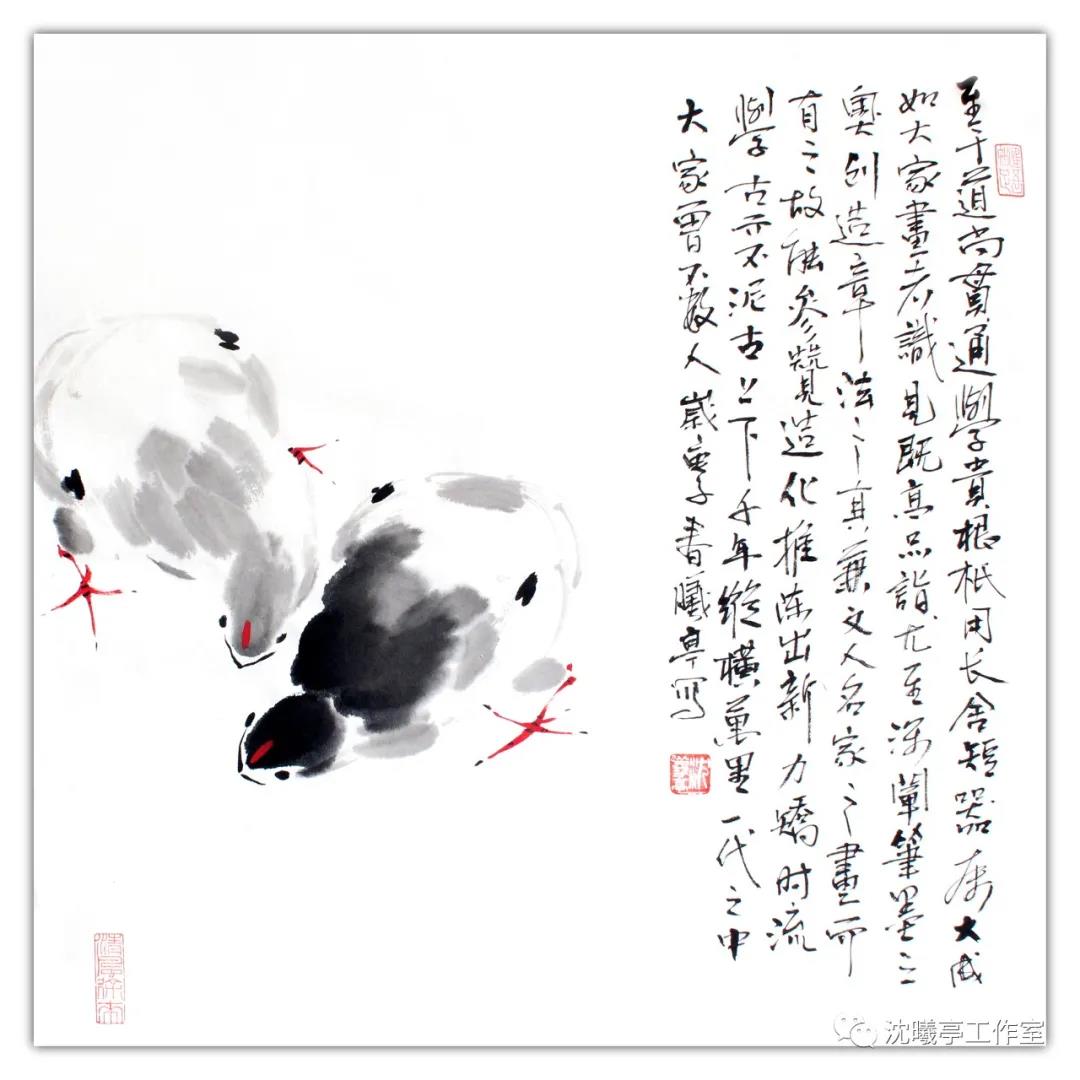 至于道尚貫通學貴根柢用长舍短器属大成
如大家畫者識見既高品詣尤至深闡筆墨之
奧創造章法之真兼文人名家之畫而
有之故能參贊造化推陈出新力矯时流
學古亦不泥古上下千年縱橫萬里一代之中
大家曾不數人歲庚子春曦亭寫
沈曦亭工作室